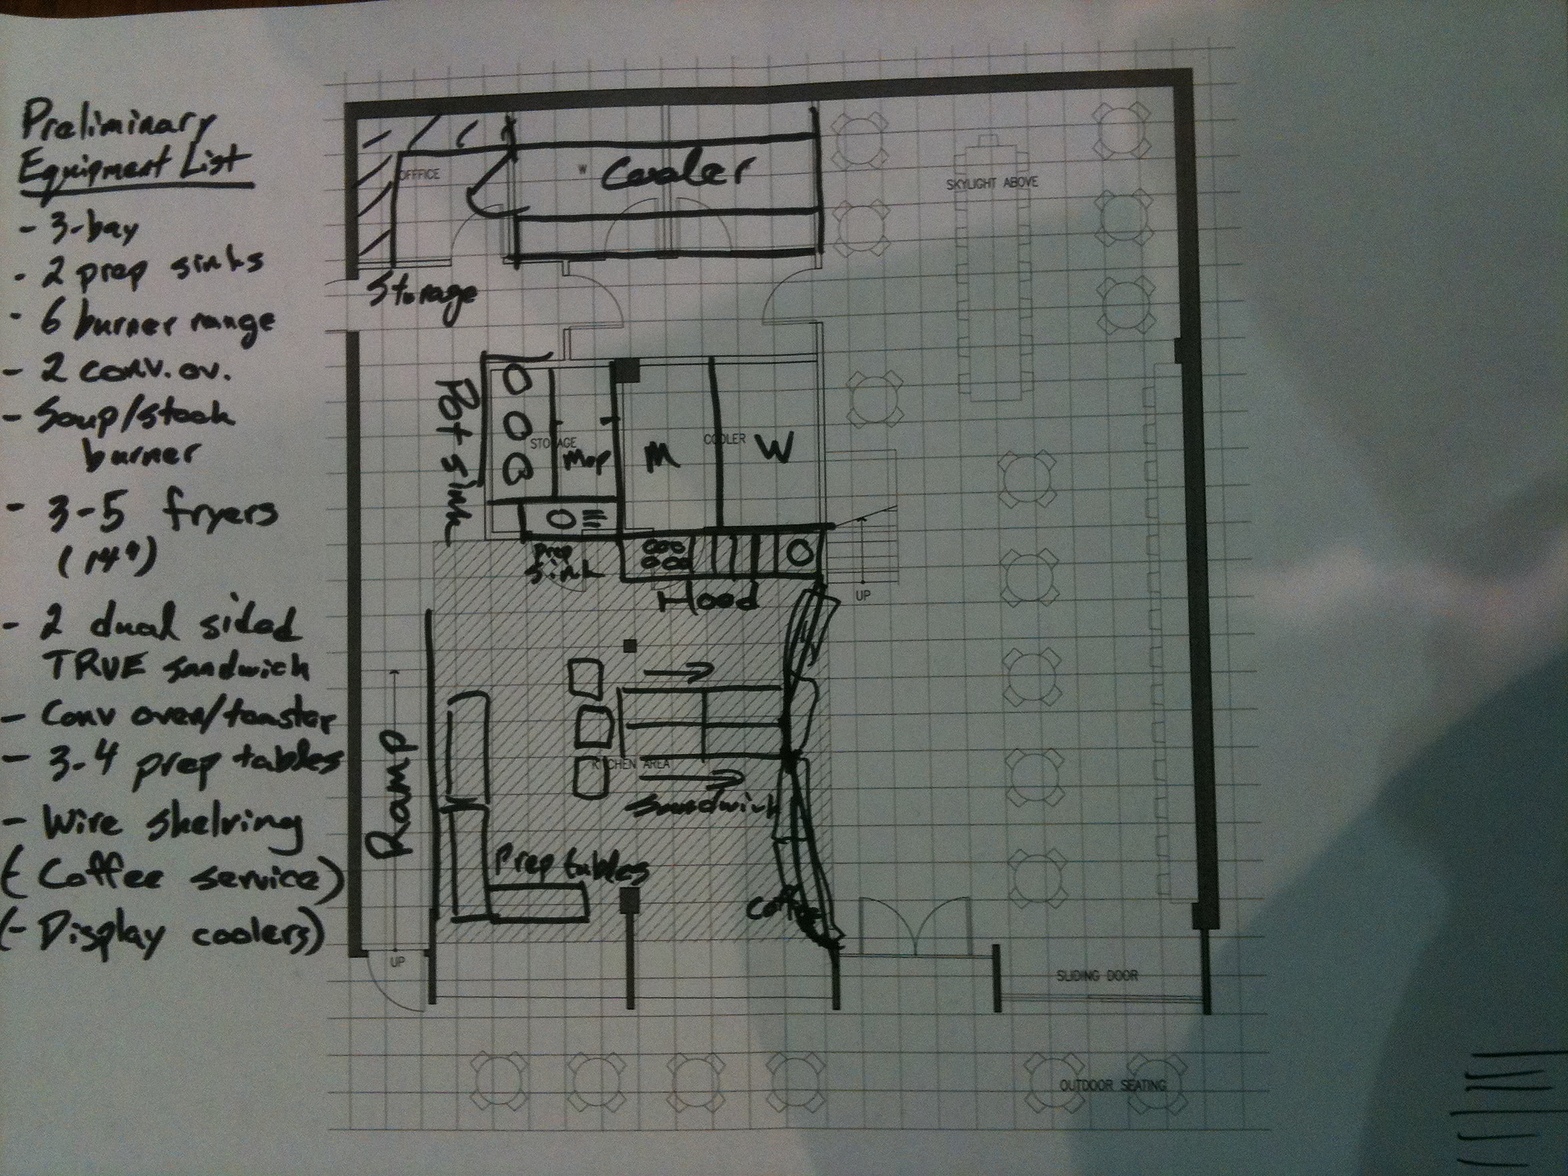 Preliminary
Equipment List
- 3-bay
- 2 prep sinks
- 6 burner range
- 2 conv. ov.
- Soup/stock
burner
- 3-5 fryers
(14")
- 2 dual sided
TRUE sandwich
- Conv oven/toaster
- 3-4 prep tables
- Wire shelving
(- Coffee service)
(- Display coolers)
OFFICE
W
Cooler
SKYLIGHT ABOVE
Storage
Pot sink
STORAGE
Mop
M
COOLER
W
Prep
sink
Hood
UP
KITCHEN AREA
Sandwich
Ramp
Prep tables
UP
SLIDING DOOR
OUTDOOR SEATING